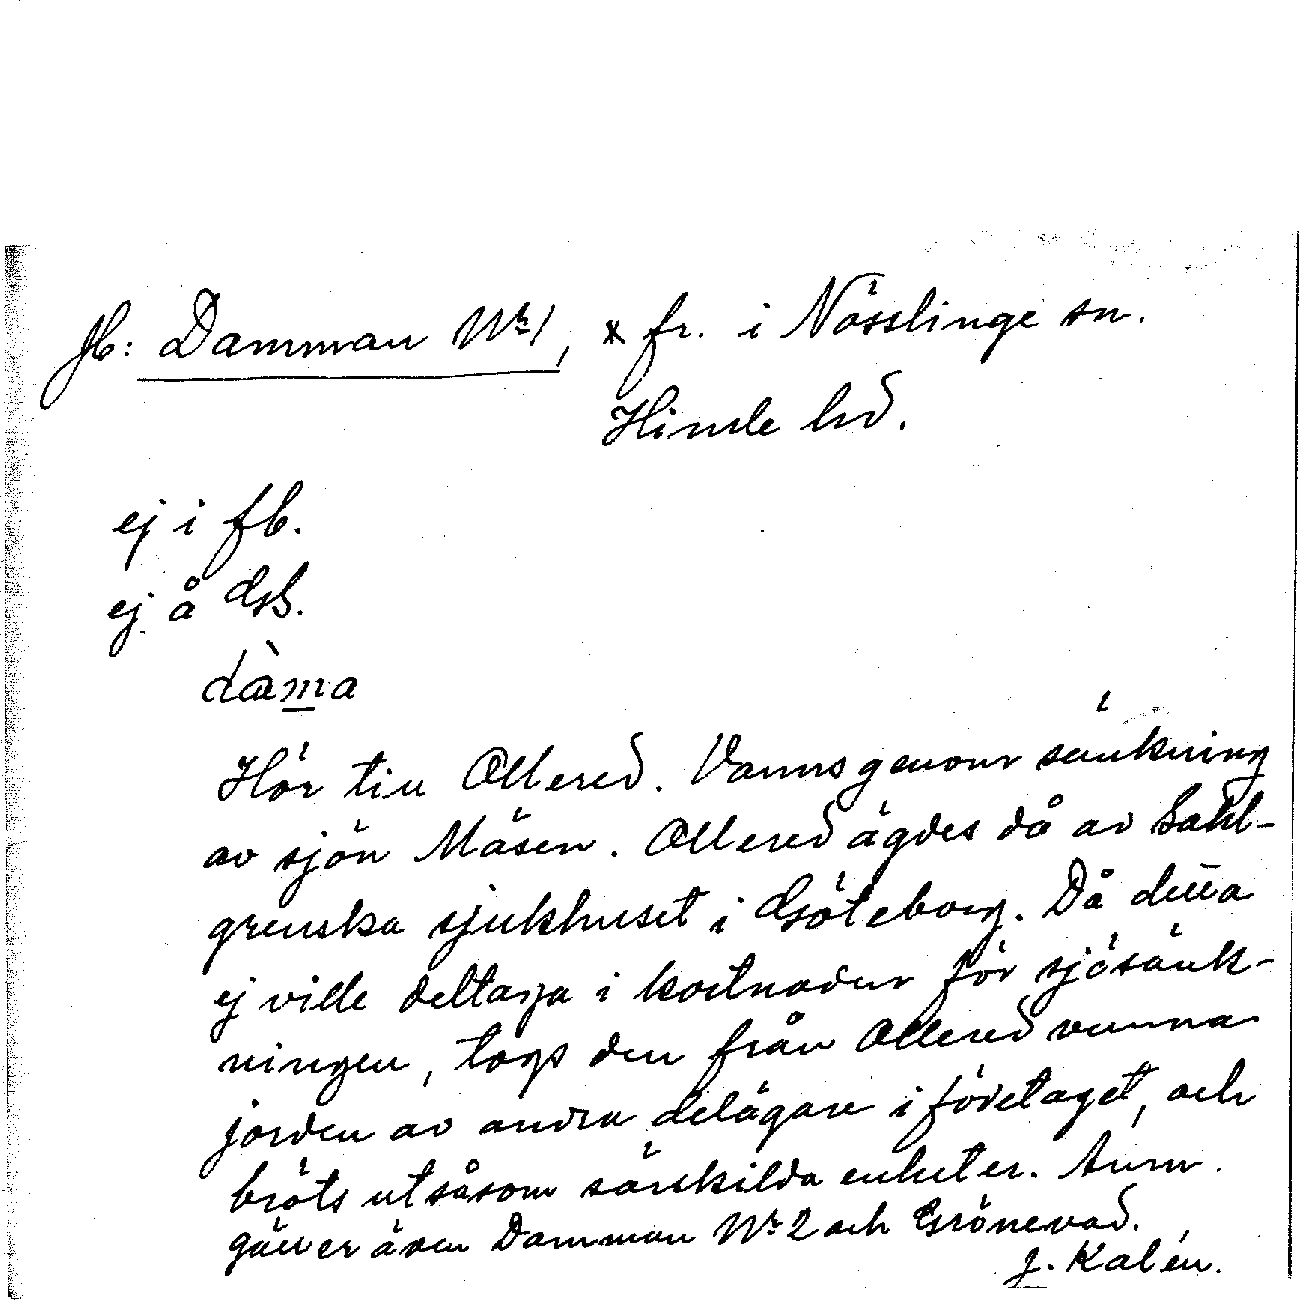 Jb: Damman Nr 1, * fr. i Nösslinge sn.
Himle hd.
ej i fb.
ej å Gsk.
dàma
Hör till Ollered. Vanns genom sänkning
av sjön Mäsen. Ollered ägdes då av Sahl-
grenska sjukhuset i Göteborg. Då detta
ej ville deltaga i kostnader för sjösänk-
ningen, togs den från Ollered vunna
jorden av andra delägare i företaget, och
bröts ut såsom särskilda enheter. Anm.
gäller även Damman Nr 2 och Grönevad.
J. Kalén.